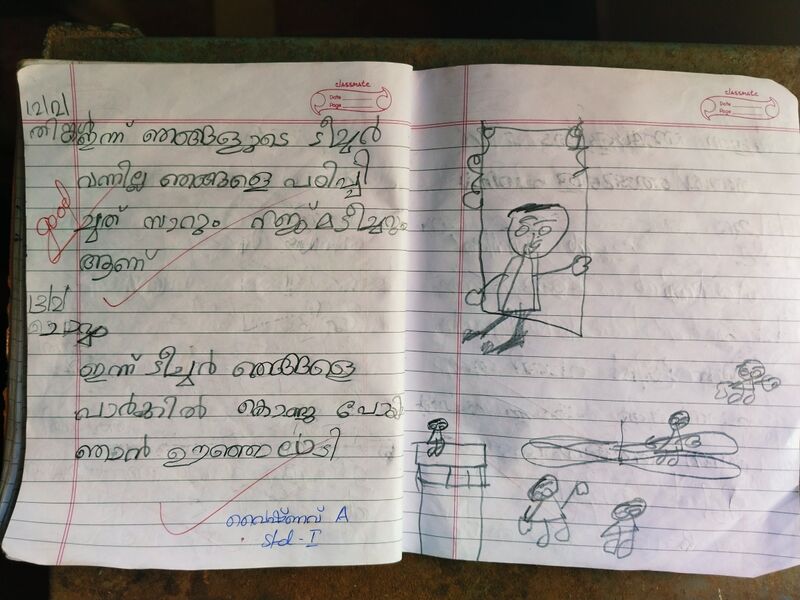 classmate
Date
Page
classmate
Date
Page
12/2/
തിങ്കൾ ഇന്ന് ഞങ്ങളുടെ ടീച്ചർ
വന്നില്ല ഞങ്ങളെ പഠിപ്പി
good
ച്ചത് സാറും ടീച്ചറും
ആണ്
13/2/
ചൊവ്വ
ഇന്ന് ടീച്ചർ ഞങ്ങളെ
പാർക്കിൽ കൊണ്ടു പോയി
ഞാൻ ഊഞ്ഞാലാടി
വൈഷ്ണവ് A
Std - I